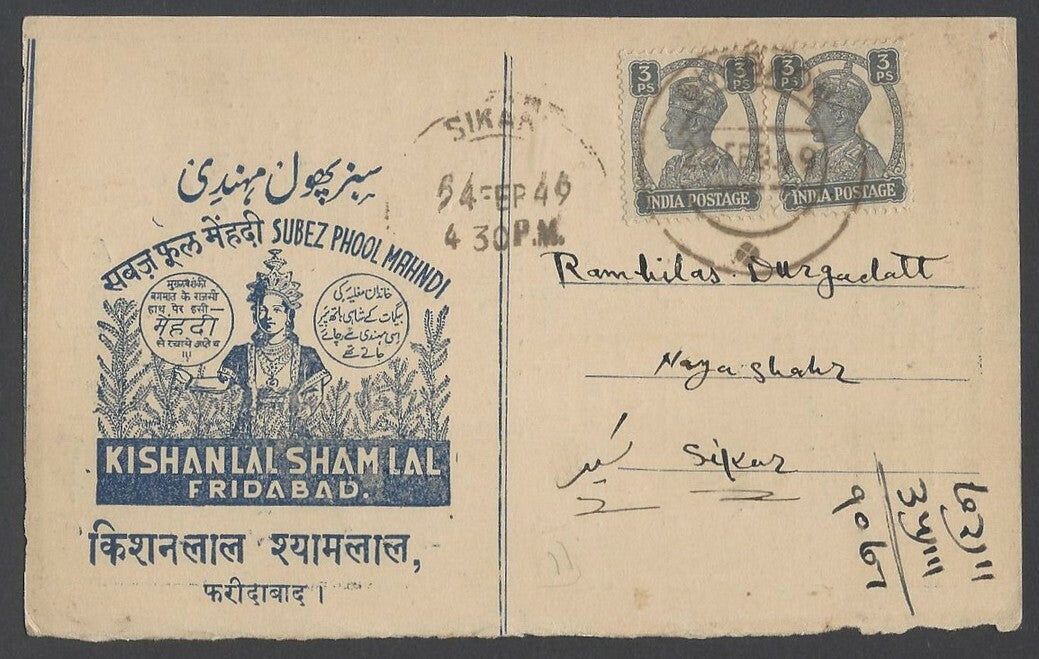 سبز پھول مہندی
सबज़ फूल मेंहदी SUBEZ PHOOL MAHNDI
बगमात के
हाथ पैर इसी
मेंहदी
से रचाये जाते थे
!!!
خاندان مغلیہ کی
بیگمات کے شاہی ہاتھ پیر
اسی مہندی سے رچائے
جاتے تھے
KISHANLAL SHAM LAL
FRIDABAD.
किशनलाल श्यामलाल,
फरीदाबाद ।
SIKAR
4 30 P.M.
3 PS
3 PS
3 PS
3 PS
INDIA POSTAGE
INDIA POSTAGE
Rambilas Durgadatt
Naya shahr
Sikar